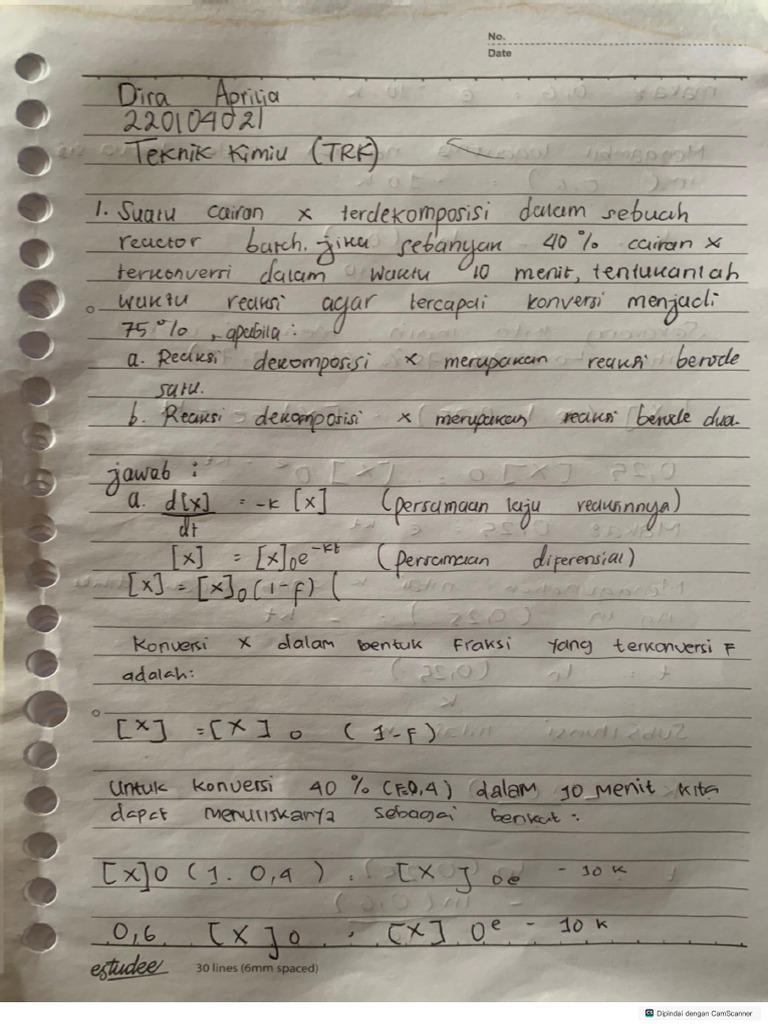 No.
Date
Dira Aprilia
220104021
Teknik Kimiu (TRK)
1. Suatu cairan x terdekomposisi dalam sebuah
reactor batch. jika sebanyak 40 % cairan x
terkonversi dalam waktu 10 menit, tentukanlah
waktu reaksi agar tercapai konversi menjadi
75 %, apabila :
a. Reaksi dekomposisi x merupakan reaksi berode
satu.
b. Reaksi dekomposisi x merupakan reaksi berode dua.
jawab :
a. d[x]/dt = -k [x] (persamaan laju reduinnya)
[x] = [x]₀e^-kt (persamaan diferensial)
[x] = [x]₀ (1-f) (
Konversi x dalam bentuk Fraksi yang terkonversi F
adalah:
[x] = [x]₀ (1-f)
Untuk konversi 40 % (F=0,4) dalam 10 Menit kita
dapat menuliskanya sebagai berikut :
[x]0 (1. 0,4) = [x] 0e - 10 k
0,6 [x]0 = [x] 0e - 10 k
estudee 30 lines (6mm spaced)
CS Dipindai dengan CamScanner